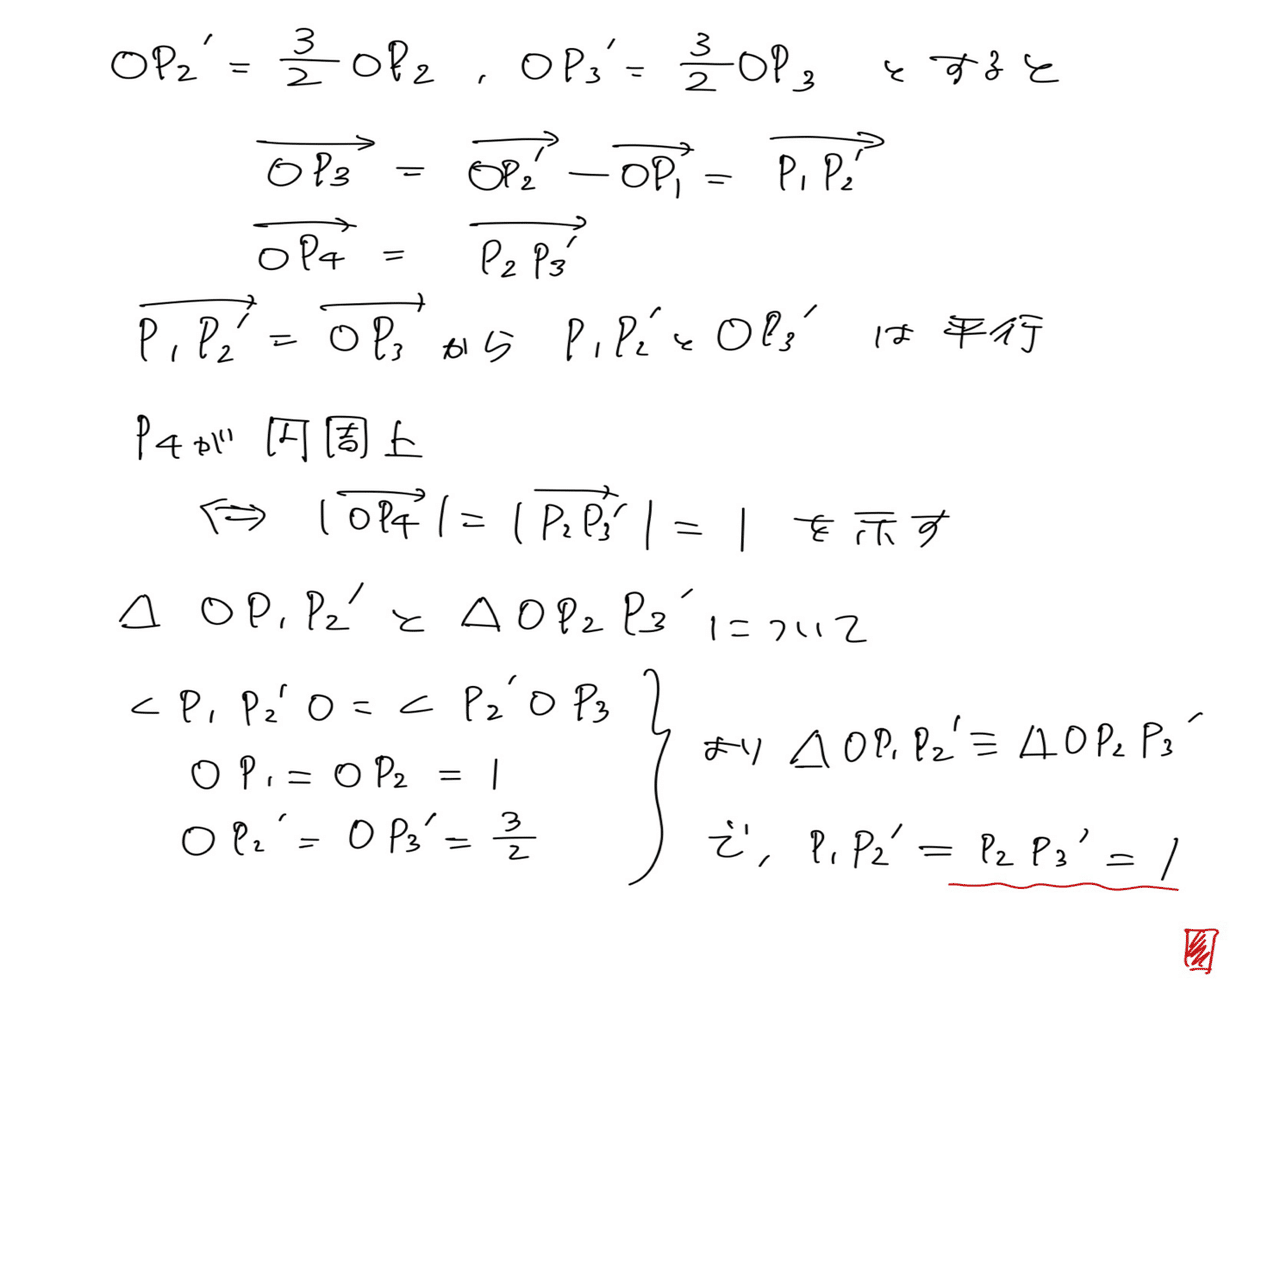 OP₂′ = 3/2 OP₂ , OP₃′ = 3/2 OP₃ とすると
→OP₃ = →OP₂′ − →OP₁ = →P₁P₂′
→OP₄ = →P₂P₃′
→P₁P₂′ = →OP₃ から P₁P₂′ と OP₃′ は 平行
P₄が 円周上
⇔ |→OP₄| = |→P₂P₃′| = 1 を示す
△ OP₁P₂′ と △OP₂P₃′ について
< P₁P₂′O = < P₂′OP₃
OP₁ = OP₂ = 1
OP₂′ = OP₃′ = 3/2
より △OP₁P₂′ ≡ △OP₂P₃′
で, P₁P₂′ = P₂P₃′ = 1